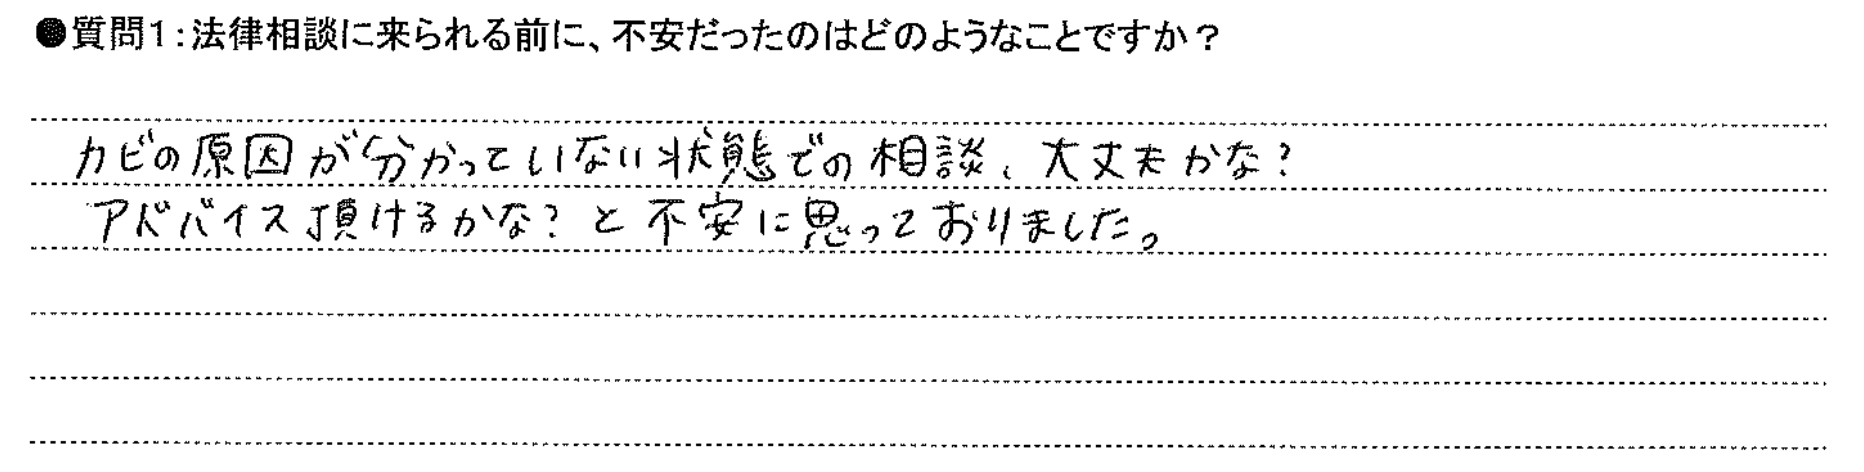 ●質問1：法律相談に来られる前に、不安だったのはどのようなことですか？
カビの原因が分かっていない状態での相談、大丈夫かな？
アドバイス頂けるかな？と不安に思っておりました。